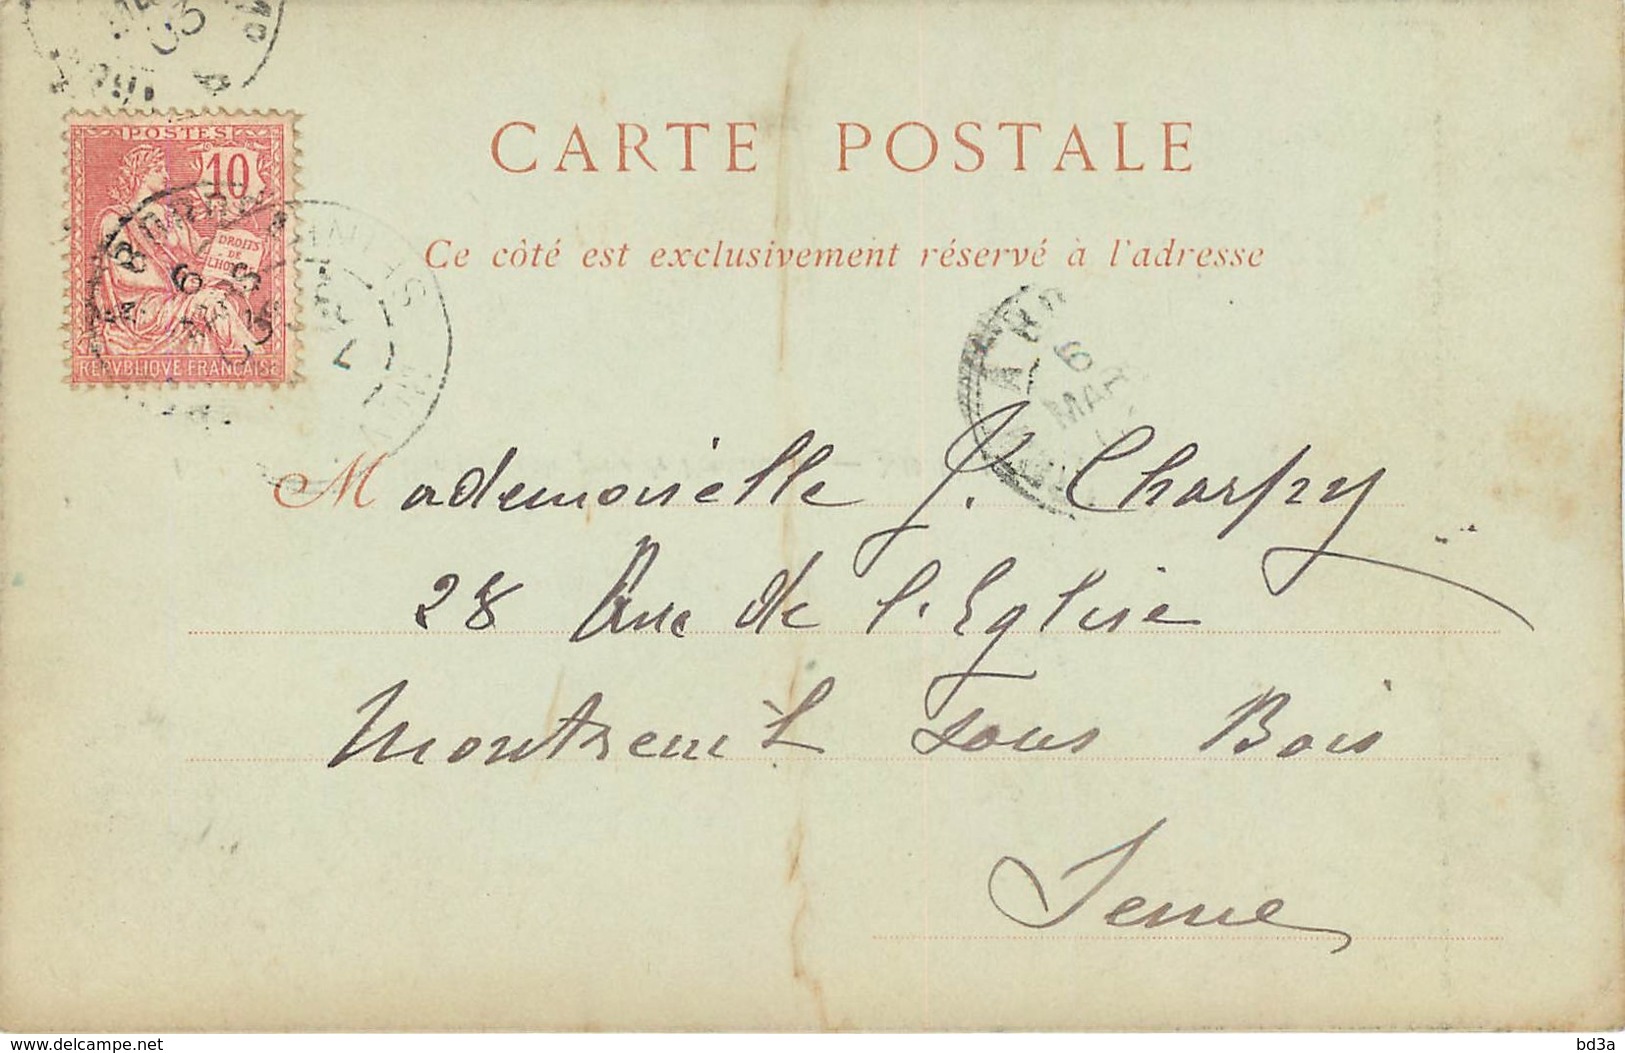 POSTES
10
DROITS
DE
L'HOMME
REPVBLIQVE FRANÇAISE
6
MARS
03
7
6
MAR
CARTE POSTALE
Ce côté est exclusivement réservé à l'adresse
Mademoiselle J. Charpy
28 Rue de l'Eglise
Montreuil sous Bois
Seine
www.delcampe.net
bd3a